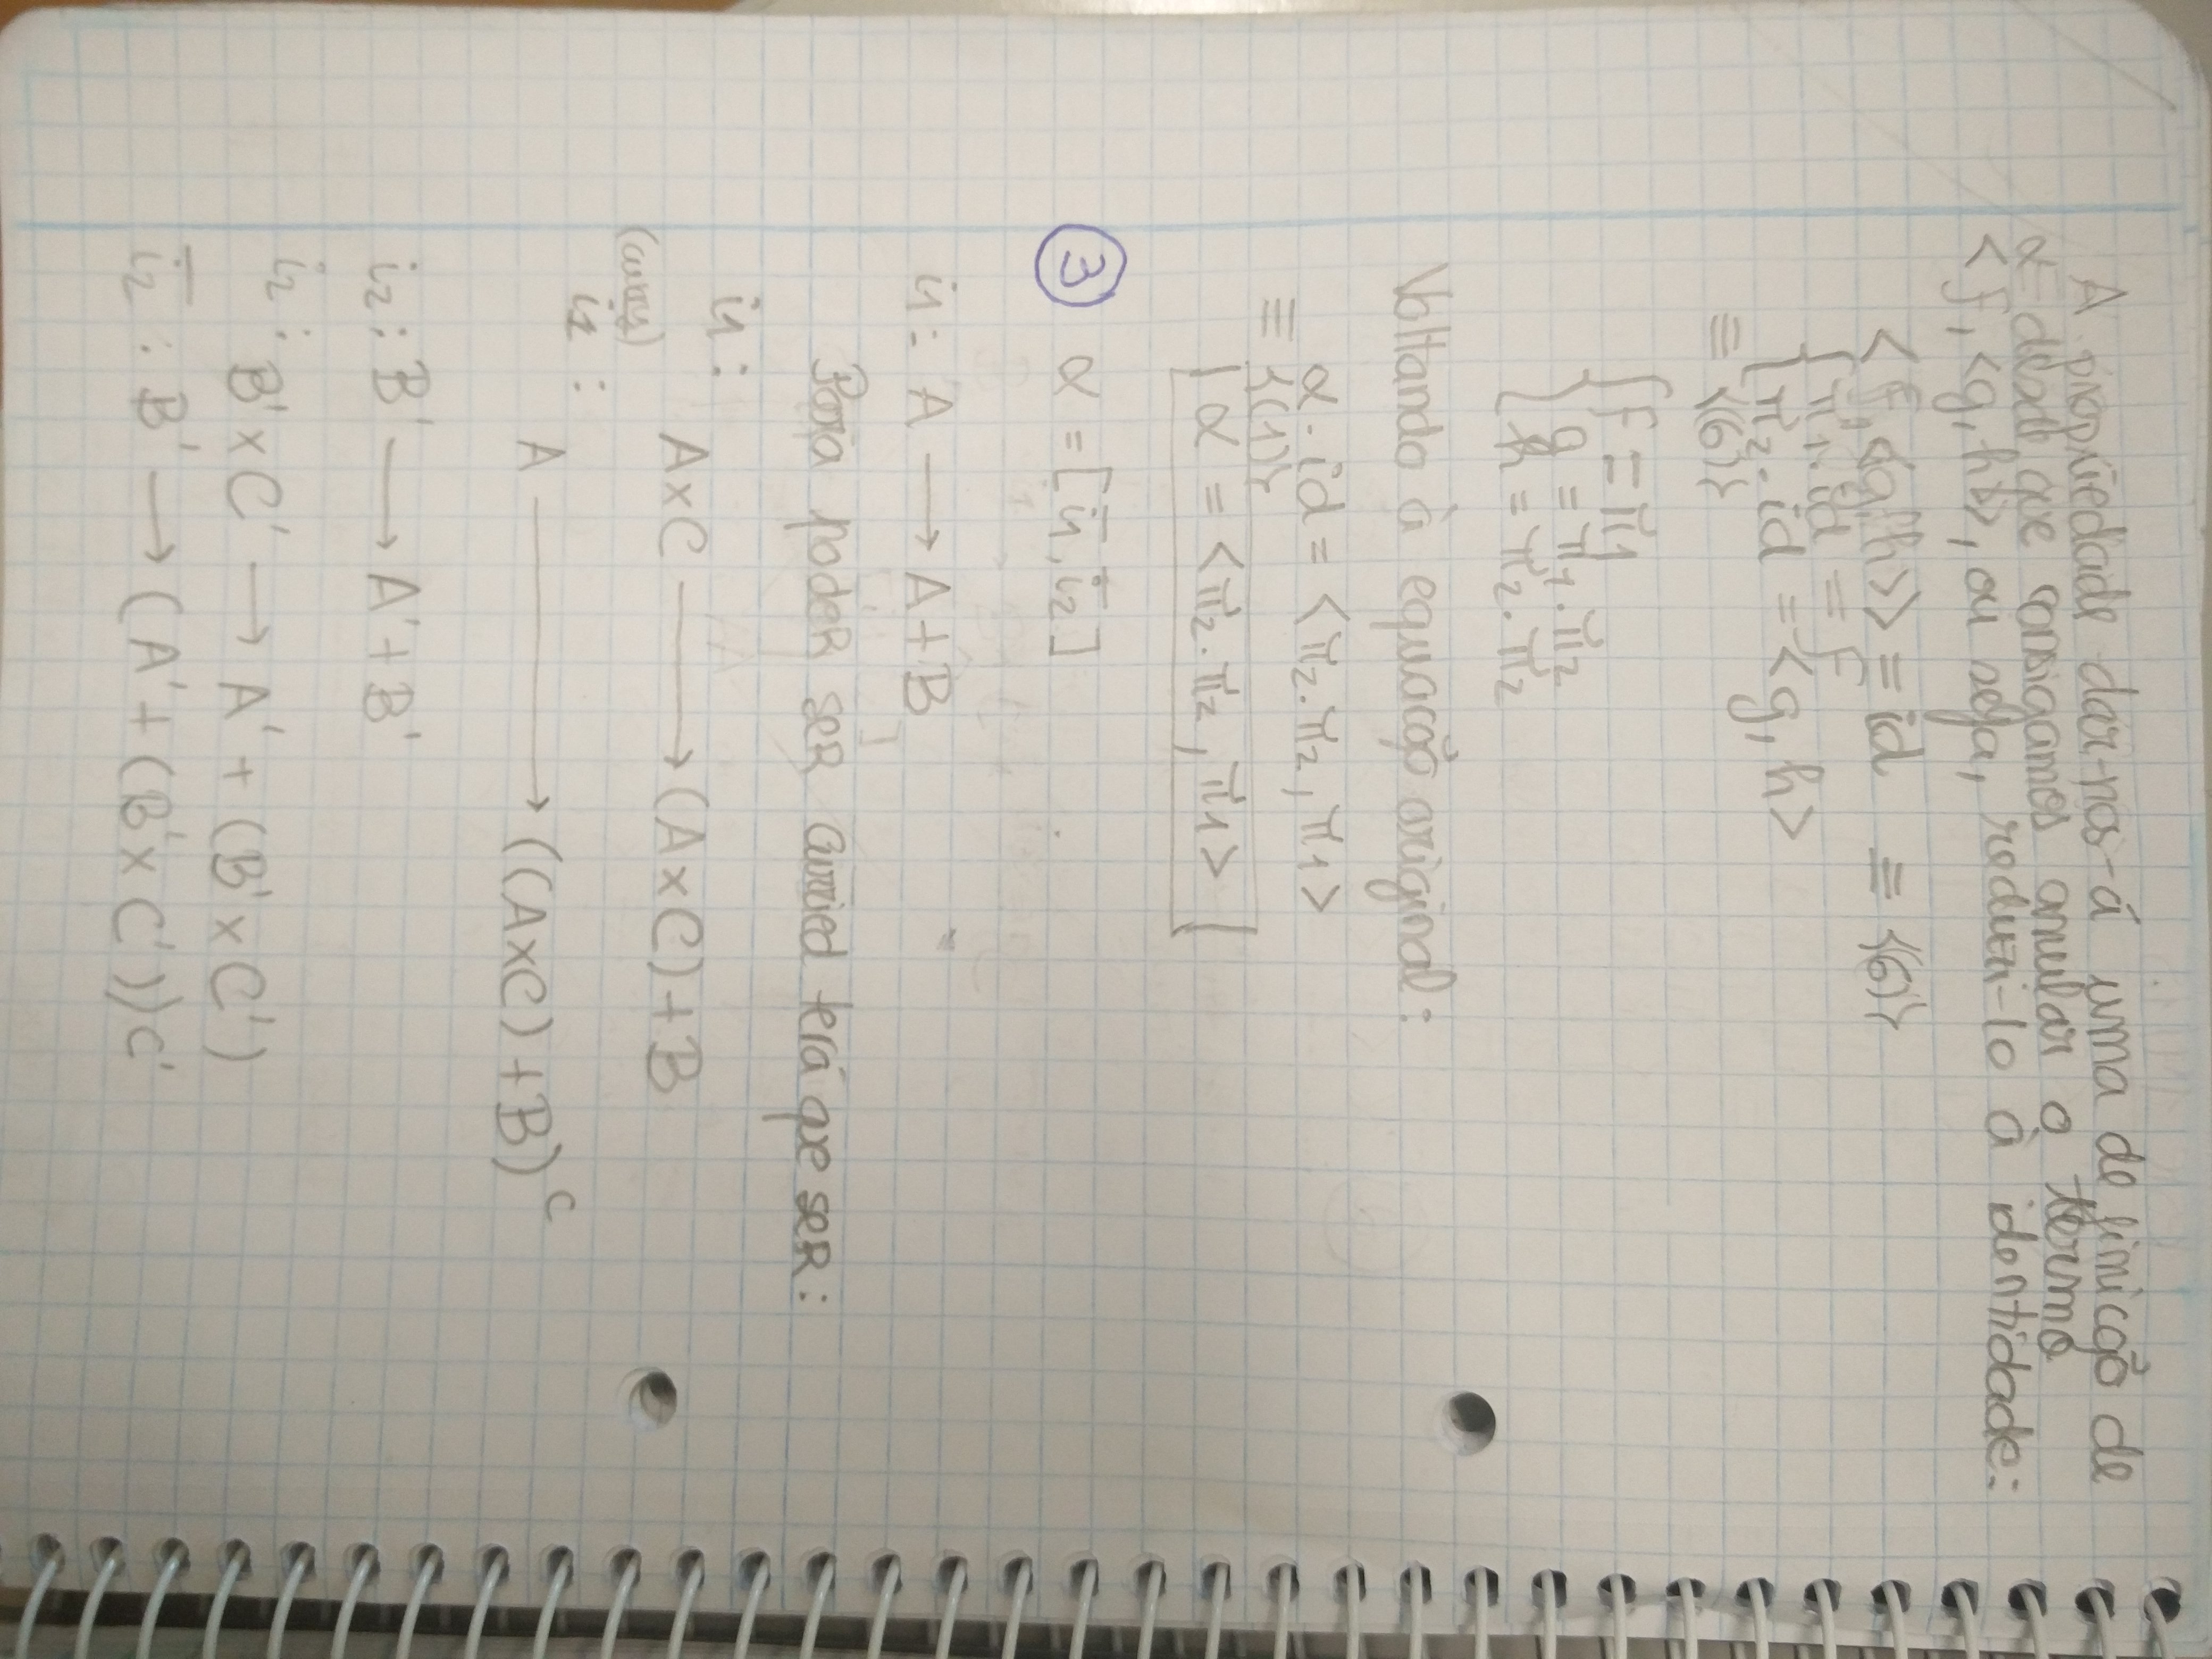 A propriedade dar-nos-á uma definicção de
α desde que consigamos anular o termo
<f,<g,h>>, ou seja, reduzi-lo à identidade:
<f,<g,h>> = id ≡ {(6)}
{ π1.id = f
π2.id = <g,h>
≡ {(6)}
{ f = π1
g = π1.π2
h = π2.π2
Voltando à equacção original:
α.id = <π2.π2, π1>
≡ {(1)}
α = <π2.π2, π1>
3 α = [i̅1, i̅2]
i1: A → A+B
Para poder ser curried terá que ser:
i1:
A×C → (A×C)+B
(curry)
i1:
A → ((A×C)+B)^C
i2: B' → A'+B'
i2:
B'×C' → A'+(B'×C')
i̅2: B' → (A'+(B'×C'))C'